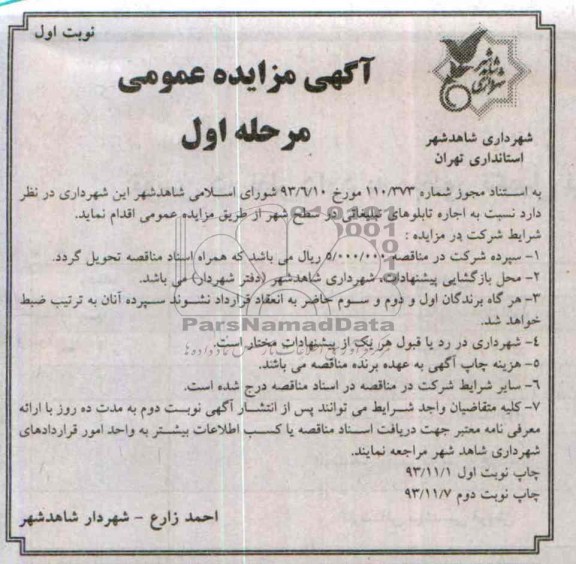 نوبت اول
شهرداری شاهدشهر
استانداری تهران
آگهی مزایده عمومی
مرحله اول
به استناد مجوز شماره ۱۱۰/۳۷۳ مورخ ۹۳/۶/۱۰ شورای اسلامی شاهدشهر این شهرداری در نظر
دارد نسبت به اجاره تابلوهای تبلیغاتی در سطح شهر از طریق مزایده عمومی اقدام نماید.
شرایط شرکت در مزایده :
۱- سپرده شرکت در مناقصه ۵/۰۰۰/۰۰۰ ریال می باشد که همراه اسناد مناقصه تحویل گردد.
۲- محل بازگشایی پیشنهادات، شهرداری شاهدشهر (دفتر شهردار) می باشد.
۳- هر گاه برندگان اول و دوم و سوم حاضر به انعقاد قرارداد نشوند سپرده آنان به ترتیب ضبط
خواهد شد.
ParsNamadData
۴- شهرداری در رد یا قبول هر یک از پیشنهادات مختار است.
۵- هزینه چاپ آگهی به عهده برنده مناقصه می باشد.
۶- سایر شرایط شرکت در مناقصه در اسناد مناقصه درج شده است.
۷- کلیه متقاضیان واجد شرایط می توانند پس از انتشار آگهی نوبت دوم به مدت ده روز با ارائه
معرفی نامه معتبر جهت دریافت اسناد مناقصه یا کسب اطلاعات بیشتر به واحد امور قراردادهای
شهرداری شاهد شهر مراجعه نمایند.
چاپ نوبت اول ۹۳/۱۱/۱
چاپ نوبت دوم ۹۳/۱۱/۷
احمد زارع - شهردار شاهدشهر